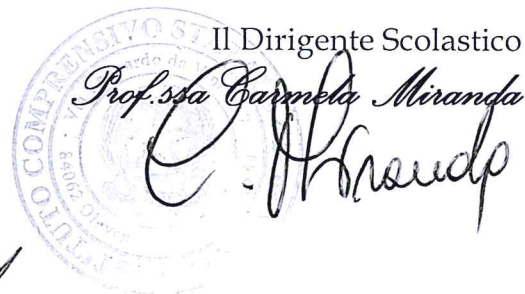 Il Dirigente Scolastico
Prof.ssa Carmela Miranda
C. Miranda
ISTITUTO COMPRENSIVO ST
84062